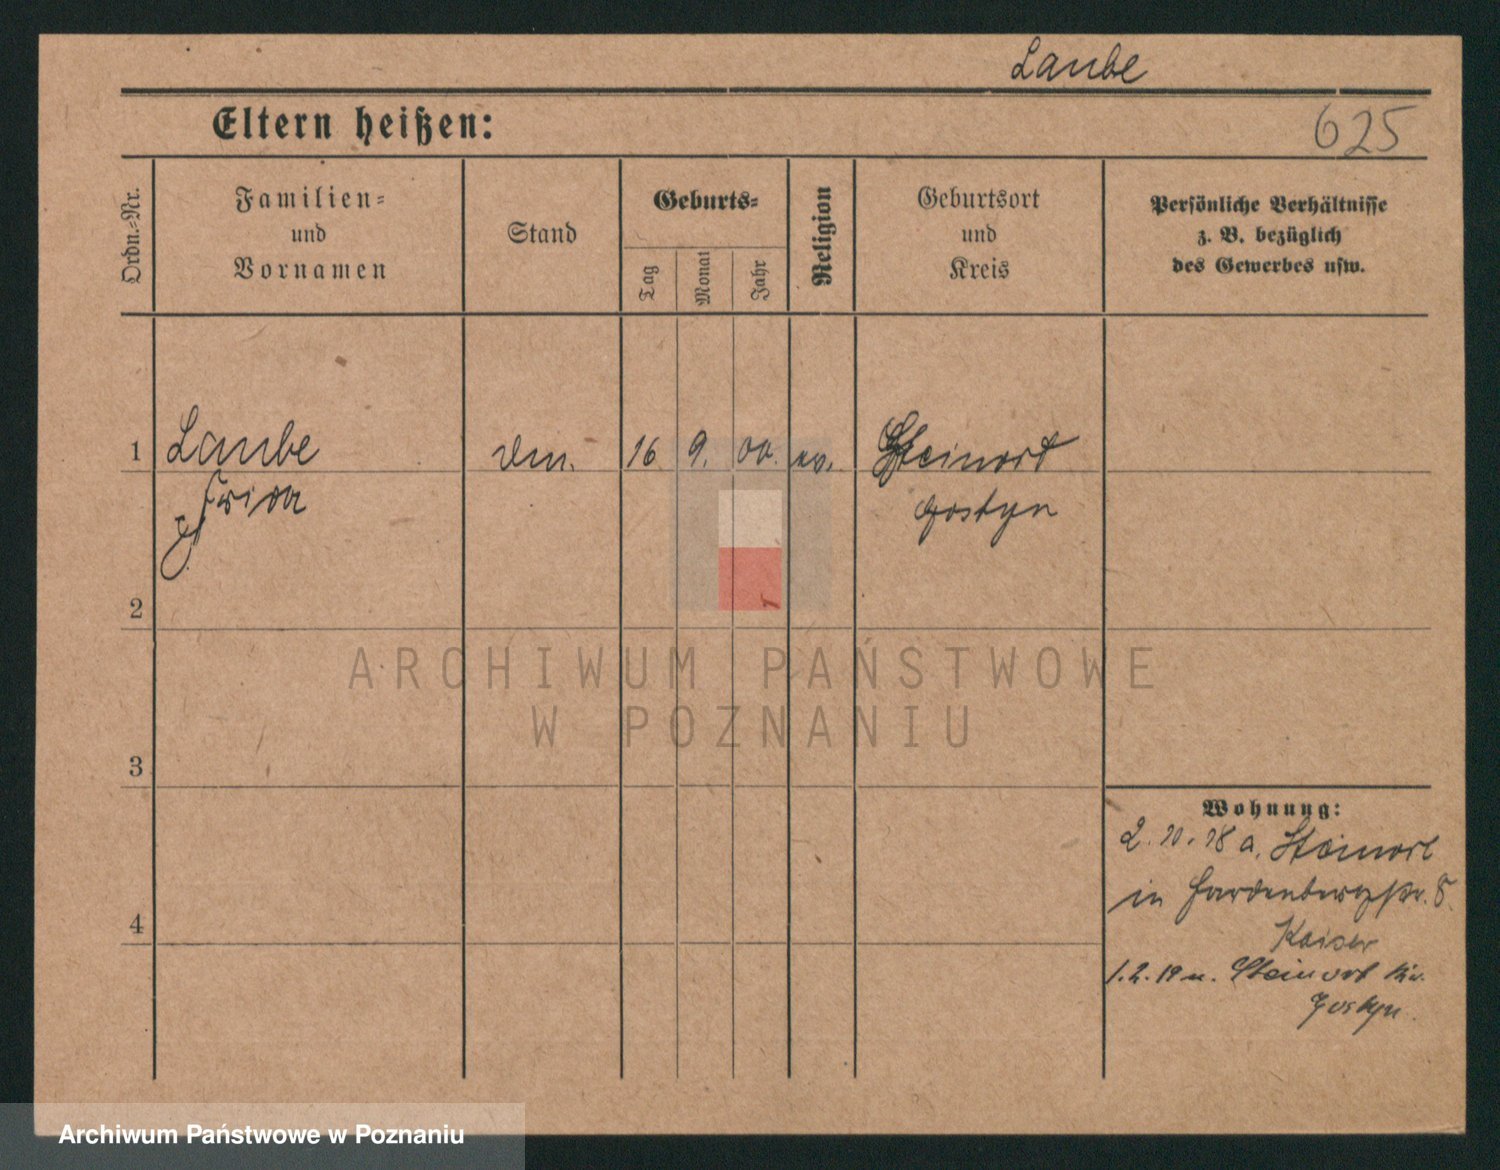 Laube
Eltern heißen:
625
Ordn.-Nr.
Familien-
und
Vornamen
Stand
Geburts-
Tag
Monat
Jahr
Religion
Geburtsort
und
Kreis
Persönliche Verhältnisse
z. B. bezüglich
des Gewerbes usw.
1 Laube 16 9. 00. ev. Steinort
Frida Gostyn
2
ARCHIWUM PAŃSTWOWE
W POZNANIU
3
Wohnung:
2. 10. 18 a. Steinort
in Hardenbergstr. 8.
Kaiser
4
1. 2. 19 n. Steinort Kr.
Gostyn.
Archiwum Państwowe w Poznaniu